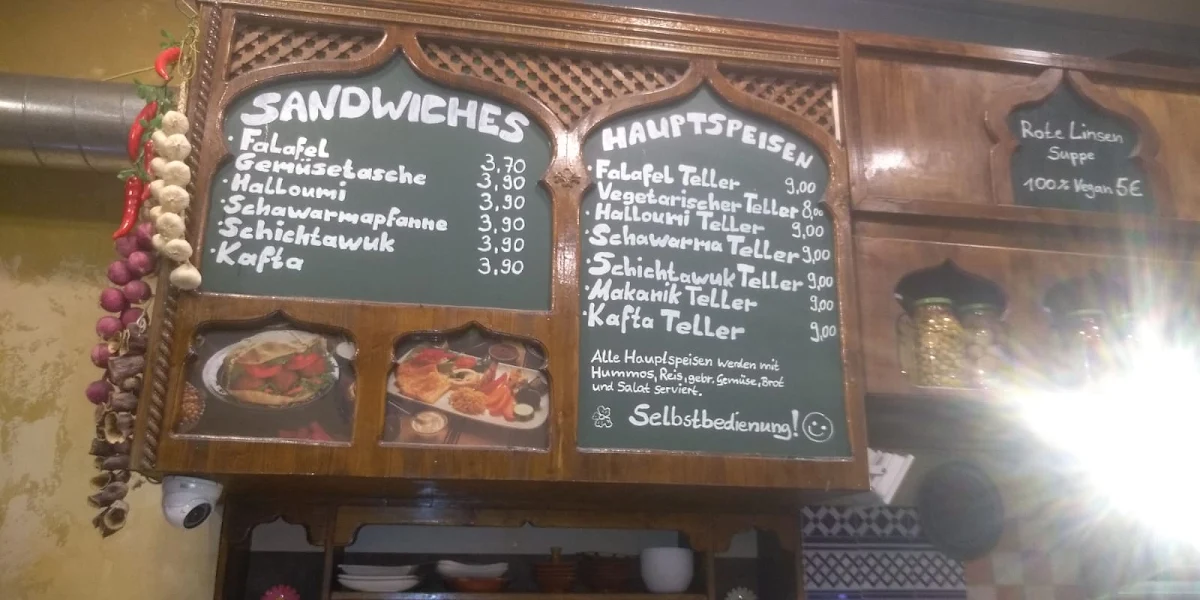 SANDWICHES
· Falafel 3,70
Gemüsetasche 3,90
· Halloumi 3,90
· Schawarmapfanne 3,90
· Schichtawuk 3,90
· Kafta 3,90
HAUPTSPEISEN
· Falafel Teller 9,00
Vegetarischer Teller 8,00
· Halloumi Teller 9,00
· Schawarma Teller 9,00
· Schichtawuk Teller 9,00
· Makanik Teller 9,00
· Kafta Teller 9,00
Alle Hauptspeisen werden mit
Hummos, Reis, gebr. Gemüse, Brot
und Salat serviert.
Selbstbedienung!
Rote Linsen
Suppe
100% Vegan 5€